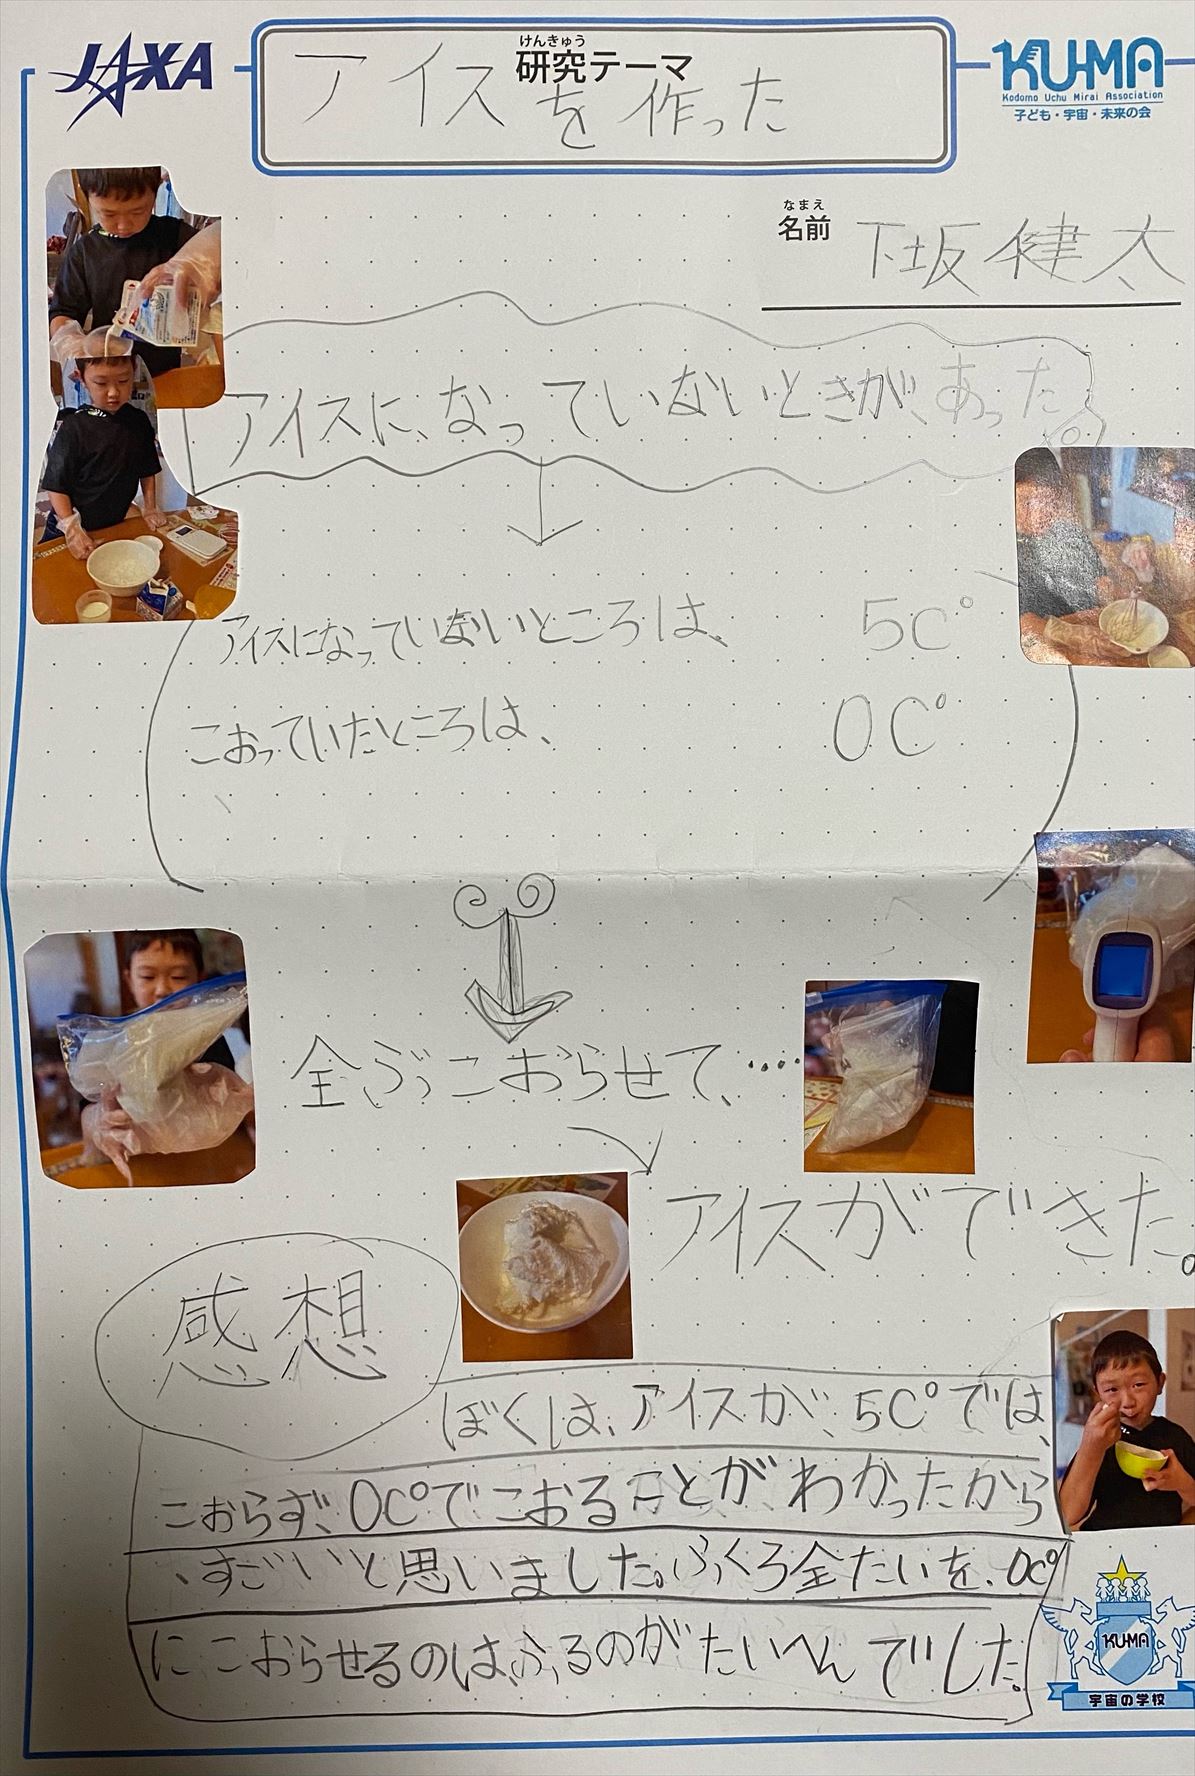 JAXA
けんきゅう
研究テーマ
アイスを作った
KUMA
Kodomo Uchu Mirai Association
子ども・宇宙・未来の会
なまえ
名前
下坂健太
アイスに、なっていないときが、あった。
アイスになっていないところは、 5C°
こおっていたところは、 0C°
全ぶ、こおらせて、····
アイスができた。
感想
ぼくは、アイスが、5C°では、
こおらず、0C°でこおることが、わかったから
、すごいと思いました。ふくろ全たいを、0C°
にこおらせるのは、ふるのがたいへんでした。
KUMA
宇宙の学校